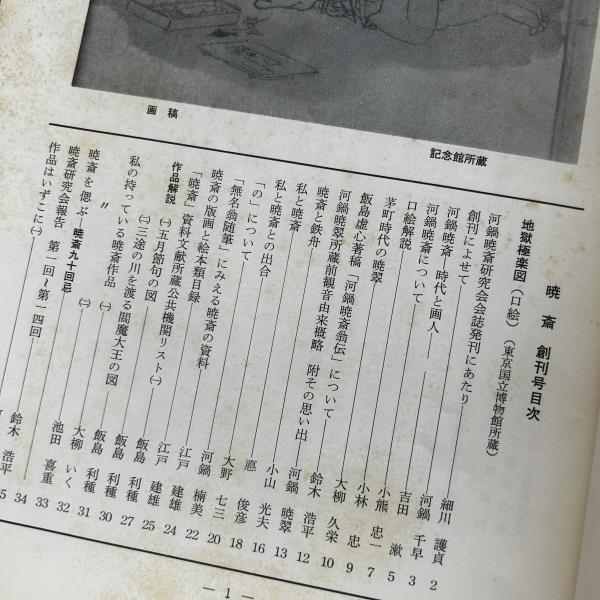 画稿
記念館所蔵
暁斎 創刊号目次
地獄極楽図（口絵）（東京国立博物館所蔵）
河鍋暁斎研究会会誌発刊にあたり 細川 護貞 2
創刊によせて 河鍋 千早 3
河鍋暁斎 時代と画人 吉田 漱 5
河鍋暁斎について 小熊 忠一 7
口絵解説
茅町時代の暁翠 小林 忠 9
飯島虚心著稿「河鍋暁斎翁伝」について 大柳 久栄 10
河鍋暁翠所蔵前観音由来概略 附その思い出 鈴木 浩平 12
暁斎と鉄舟 河鍋 暁翠 13
私と暁斎 小山 光夫 16
私と暁斎との出合
「の」について 俊彦 18
「無名翁随筆」にみえる暁斎の資料 大野 七三 20
暁斎の版画と絵本類目録 河鍋 楠美 22
「暁斎」資料文献所蔵公共機関リスト㈠ 江戸 建雄 24
作品解説
㈠五月節句の図 江戸 建雄 25
㈡三途の川を渡る閻魔大王の図 飯島 利種 27
私の持っている暁斎作品 ㈠ 飯島 利種 30
〃 ㈡ 飯島 利種 31
暁斎を偲ぶ—暁斎九十回忌 大柳 いく 32
暁斎研究会報告 第一回〜第一四回 池田 喜重 33
作品はいずこに㈠ 34
鈴木 浩平
— 1